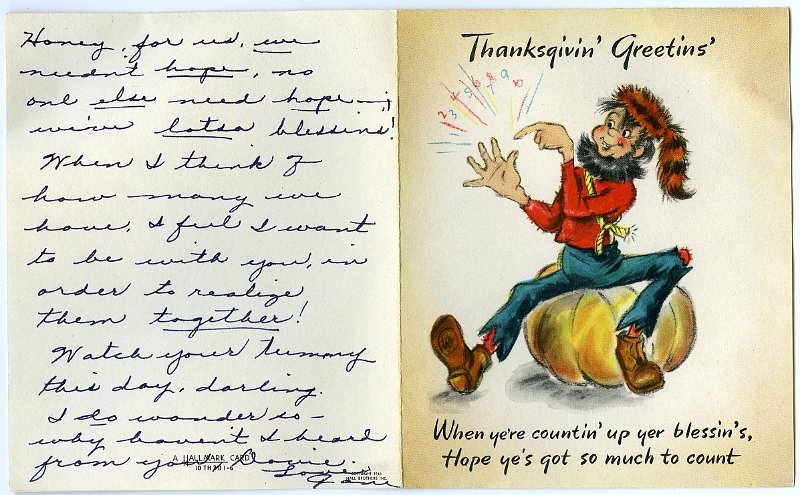 Honey, for us, we
needn't hope, no
one else need hope—,
we've lotsa blessins!
When I think of
how many we
have, I feel I want
to be with you, in
order to realize
them together!
Watch your tummy
this day, darling.
I do wonder so—
why haven't I heard
from you
Love
Jane
A HALLMARK CARD
Thanksgivin' Greetins'
2 3 4 5 6 7 8 9 10
When ye're countin' up yer blessin's,
Hope ye's got so much to count